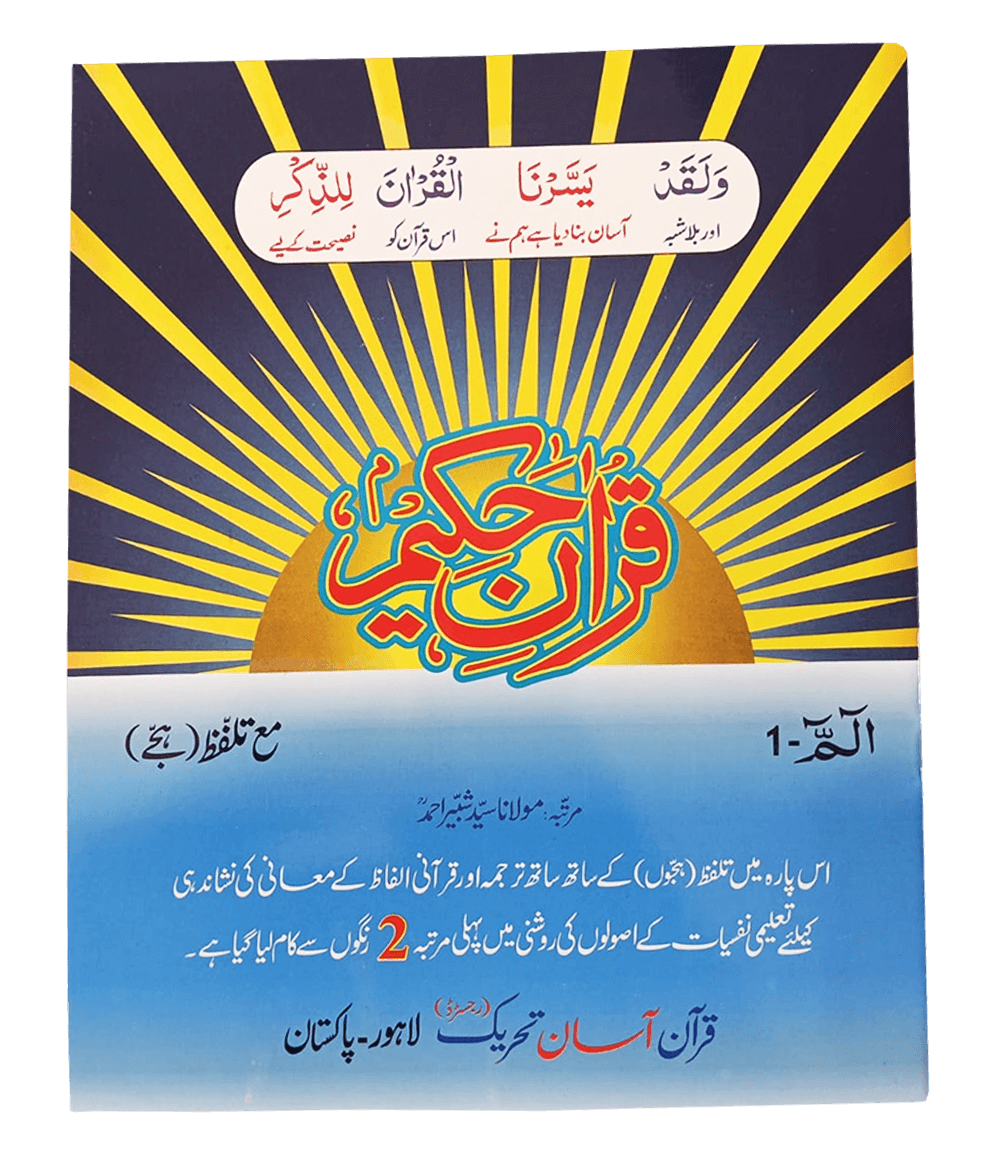 وَلَقَدْ يَسَّرْنَا الْقُرْاٰنَ لِلذِّكْرِ
اور بلا شبہ آسان بنا دیا ہے ہم نے اس قرآن کو نصیحت کے لیے
قُرْاٰنِ حَكِيْم
الٓمّٓ -1
مع تلفّظ (ہجّے)
مرتبہ: مولانا سیّد شبّیر احمدؒ
اس پارہ میں تلفظ (ہجّوں) کے ساتھ ساتھ ترجمہ اور قرآنی الفاظ کے معانی کی نشاندہی
کیلئے تعلیمی نفسیات کے اصولوں کی روشنی میں پہلی مرتبہ 2 رنگوں سے کام لیا گیا ہے۔
قرآن آسان تحریک (رجسٹرڈ) لاہور - پاکستان